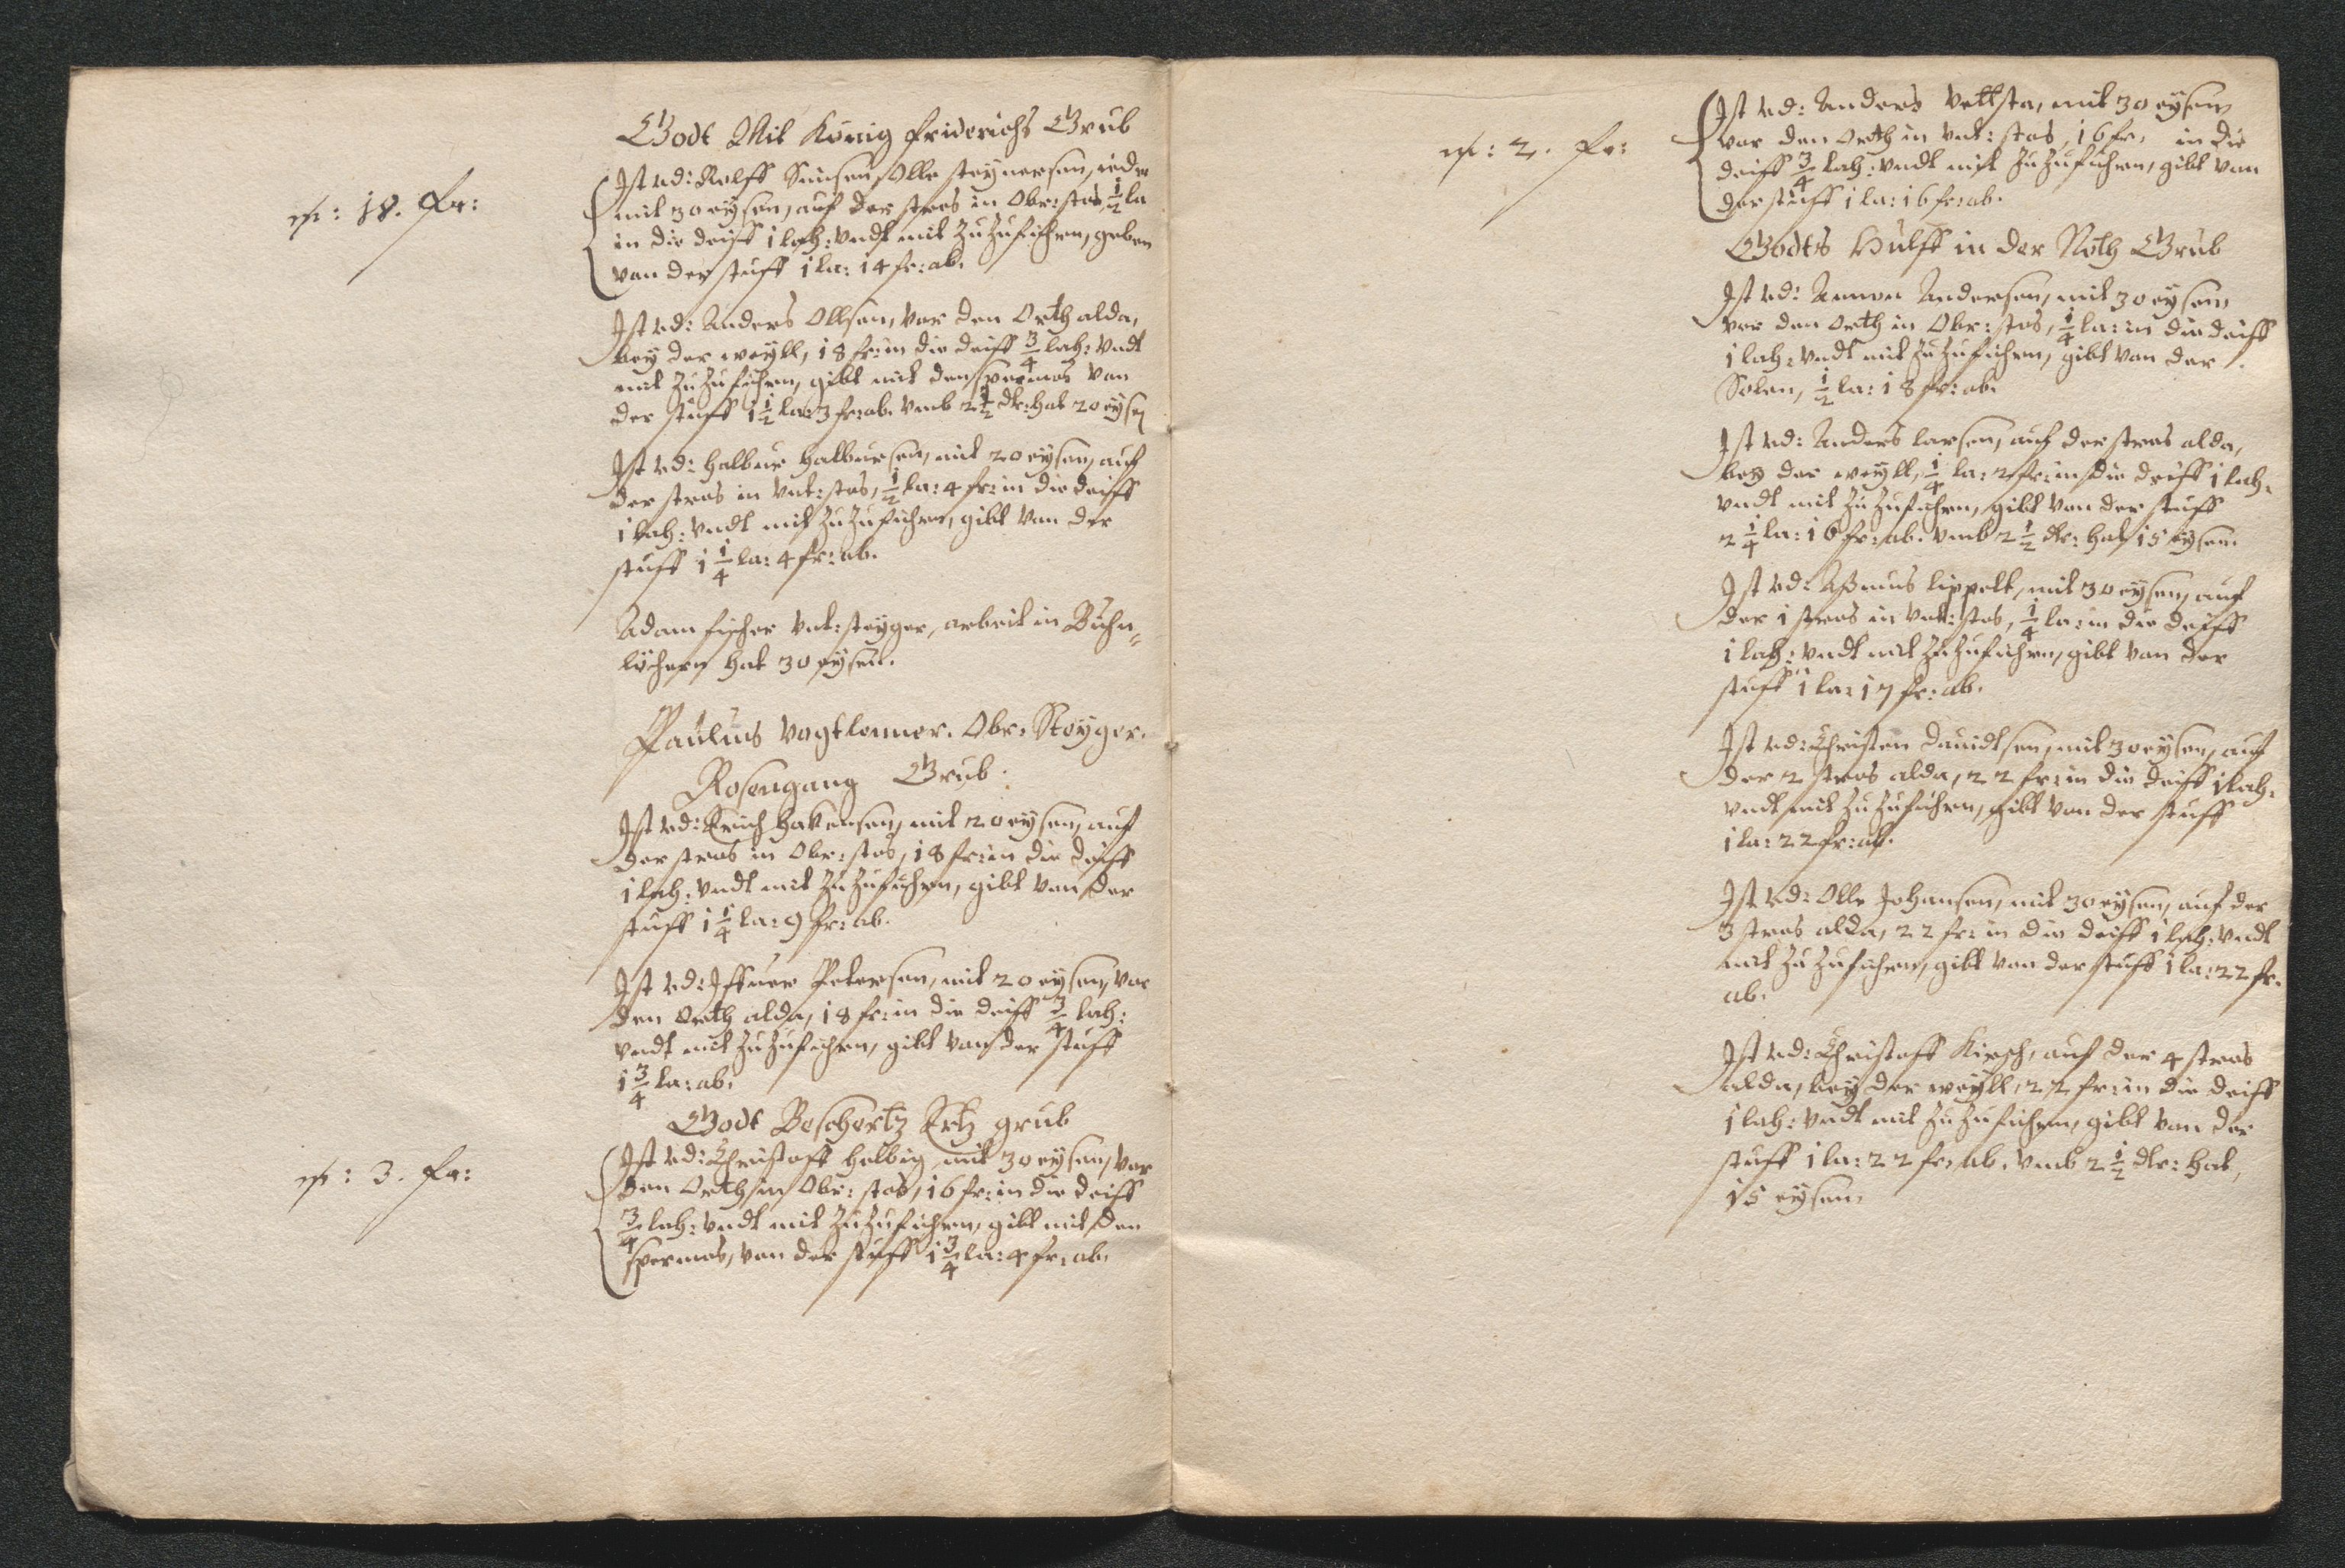 Godt Mit König friderichs Grub
n: 18. fr:
Ist vd: Rolff Simensen, Olle steynersen, ieder
mit 30 eysen, auf der stros in Obr: stos, 1/2 la
in die deiff 1 lah: vndt mit Zu Zufuhren, geben
van der stuff 1 la: 14 fr: ab.
Ist vd: Anders Ollsen, vor den Orth alda,
bey der weyll, 18 fr: in die deiff 3/4 lah: vndt
mit Zu Zufuhren, gibt mit den spermos van
der stuff 1 1/2 la: 3 fr: ab. vmb 2 1/2 dr: hat 20 eysen
Ist vd: Halbur Halbursen, mit 20 eysen, auf
der stros in vnt: stos, 1/2 la: 4 fr: in die deiff
1 lah: vndt mit Zu Zufuhren, gibt van der
stuff 1 1/4 la: 4 fr: ab.
Adam fischer vnt: steyger, arbeit in Buhn=
löchern hat 30 eysen.
Paulus Vogtlenner. Obr: Steyger.
Rosengang Grub.
Ist vd: Erich Hakensen, mit 20 eysen, auf
der stros in Obr: stos, 18 fr: in die deiff
1 lah: vndt mit Zu Zufuhren, gibt van der
stuff 1 1/4 la: 9 fr: ab.
Ist vd: Iffuer Petersen, mit 20 eysen, vor
den Orth alda, 18 fr: in die deiff 3/4 lah:
vndt mit Zu Zufuhren, gibt van der stuff
1 3/4 la: ab.
Godt Beschertz Ertz grub
n: 3. fr:
Ist vd: Christoff Helbig, mit 30 eysen, vor
den Orth in Obr: stos, 16 fr: in die deiff
3/4 lah: vndt mit Zu Zufuhren, gibt mit den
spermos, van der stuff 1 3/4 la: 4 fr: ab.
n: 2. fr:
Ist vd: Anders Vettsta, mit 30 eysen
vor den Orth in vnt: stos, 16 fr: in die
deiff 3/4 lah: vndt mit Zu Zufuhren, gibt van
der stuff 1 la: 16 fr: ab.
Godts Hulff in der Noth Grub
Ist vd: Amon Andersen, mit 30 eysen
vor den Orth in Obr: stos, 1/4 la: in die deiff
1 lah: vndt mit Zu Zufuhren, gibt van der
Solen, 1/2 la: 18 fr: ab.
Ist vd: Anders larsen, auf der stros alda,
bey der weyll, 1/4 la: 2 fr: in die deiff 1 lah:
vndt mit Zu Zufuhren, gibt van der stuff
2 1/4 la: 16 fr: ab. vmb 2 1/2 dr: hat 15 eysen.
Ist vd: Aßmus lippelt, mit 30 eysen, auf
der 1 stros in vnt: stos, 1/4 la: in die deiff
1 lah: vndt mit Zu Zufuhren, gibt van der
stuff 1 la: 17 fr: ab.
Ist vd: Christen Dauidtsen, mit 30 eysen, auf
der 2 stros alda, 22 fr: in die deiff 1 lah:
vndt mit Zu Zufuhren, gibt van der stuff
1 la: 22 fr: ab.
Ist vd: Olle Johansen, mit 30 eysen, auf der
3 stros alda, 22 fr: in die deiff 1 lah: vndt
mit Zu Zufuhren, gibt van der stuff 1 la: 22 fr.
ab.
Ist vd: Christoff Kirsch, auf der 4 stros
alda, bey der weyll, 22 fr: in die deiff
1 lah: vndt mit Zu Zufuhren, gibt van der
stuff 1 la: 22 fr: ab. vmb 2 1/2 dlr: hat,
15 eysen.